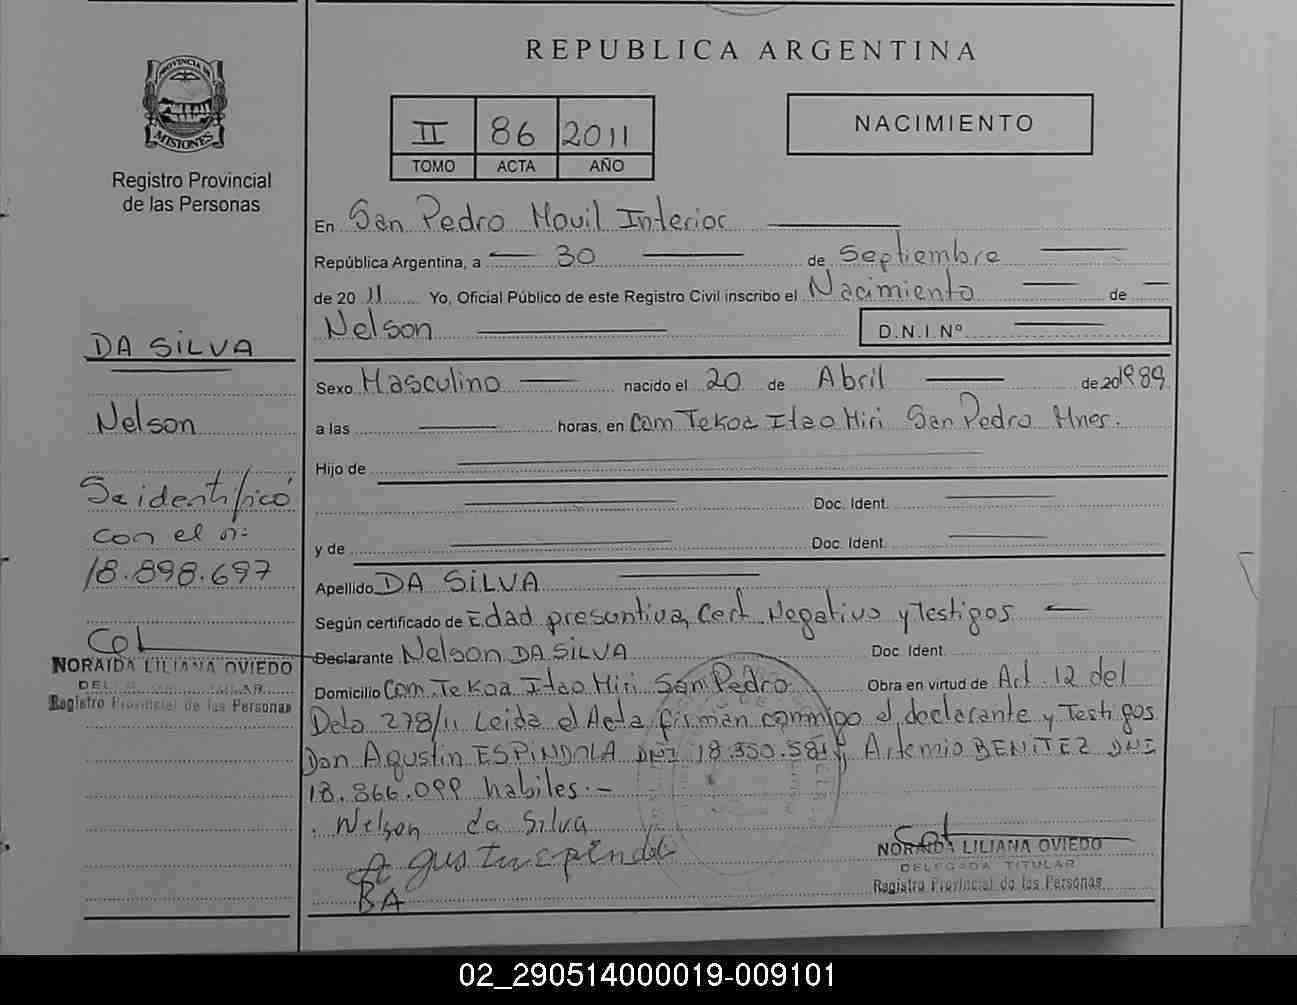 REPUBLICA ARGENTINA
PROVINCIA DE
MISIONES
Registro Provincial
de las Personas
II 86 2011
TOMO ACTA AÑO
NACIMIENTO
En San Pedro Movil Interior
República Argentina, a 30 de Septiembre
de 20 11 Yo, Oficial Público de este Registro Civil inscribo el Nacimiento de
Nelson D.N.I.Nº
DA SiLVA
Nelson
Se identificó
con el nº
18.898.697
NORAIDA LILIANA OVIEDO
Registro Provincial de las Personas
Sexo Masculino nacido el 20 de Abril de 20 1989
a las horas, en Com Tekoa Itao Miri San Pedro Mnes.
Hijo de
Doc. Ident.
y de Doc. Ident.
Apellido DA SiLVA
Según certificado de Edad presuntiva, Cert Negativo y Testigos
Declarante Nelson DA SiLVA Doc. Ident.
Domicilio Com. Tekoa Itao Miri San Pedro Obra en virtud de Art. 12 del
Dcto 278/11 Leida el Acta firman conmigo el declarante y Testigos
Don Agustin ESPiNDOLA DNI 18.350.581 y Artemio BENiTEZ DNI
18.866.099 habiles.-
Nelson da Silva
BA
NORAIDA LILIANA OVIEDO
DELEGADA TITULAR
Registro Provincial de las Personas
02_290514000019-009101